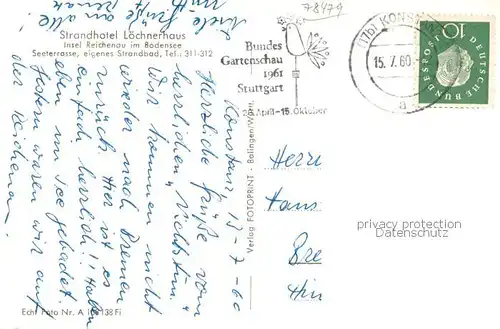 Viele Grüße an alle!
Strandhotel Löchnerhaus
Insel Reichenau im Bodensee
Seeterrasse, eigenes Strandbad, Tel.: 311-312
Konstanz 15-7-60
Herzliche Grüße vom
herrlichen "Nichtstun."
Wir kommen nicht
wieder nach Bremen
zurück. Hier ist es
einfach herrlich!! Haben
eben im See gebadet.
Gestern waren wir auf
der Reichenau
Echt Foto Nr. A 138 Fi
Verlag FOTOPRINT · Balingen/Württ.
78479
Bundes
Gartenschau
1961
Stuttgart
April-15. Oktober
(17b) KONSTANZ
15.7.60
a
10
DEUTSCHE
BUNDESPOST
Herrn
Hans
Bre
Hin
privacy protection
Datenschutz